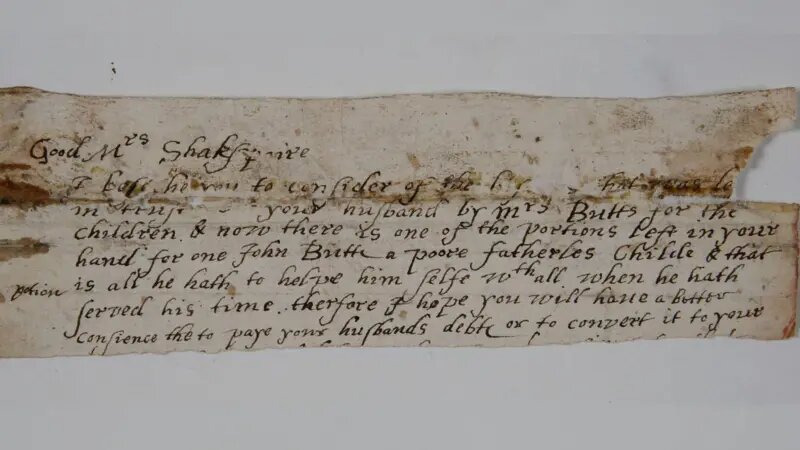 Good Mrs Shakspaire
I beseche you to consider of the that was le
in trust your husband by mrs Butts for the
children & now there is one of the portions left in your
hand for one John Butte a poore fatherles Childe & that
potion is all he hath to helpe him selfe wth all when he hath
served his time therfore I hope you will have a better
consience the to paye your husbands debte or to convert it to your